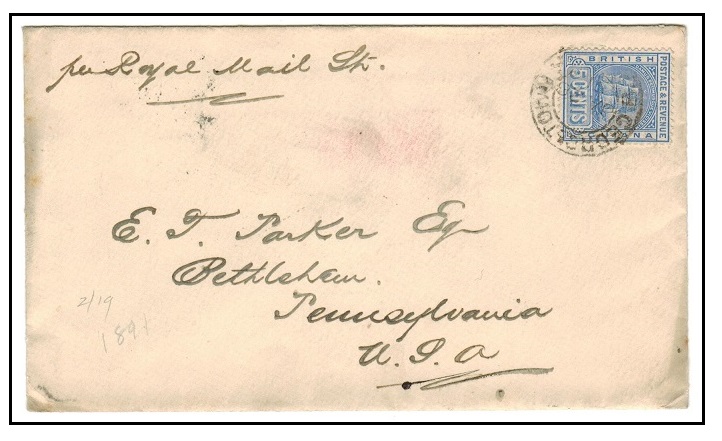 per Royal Mail St.
BRITISH
POSTAGE & REVENUE
5 CENTS
E. T. Parker Eqr
Bethlehem.
Pennsylvania
U. S. A
2/19
189